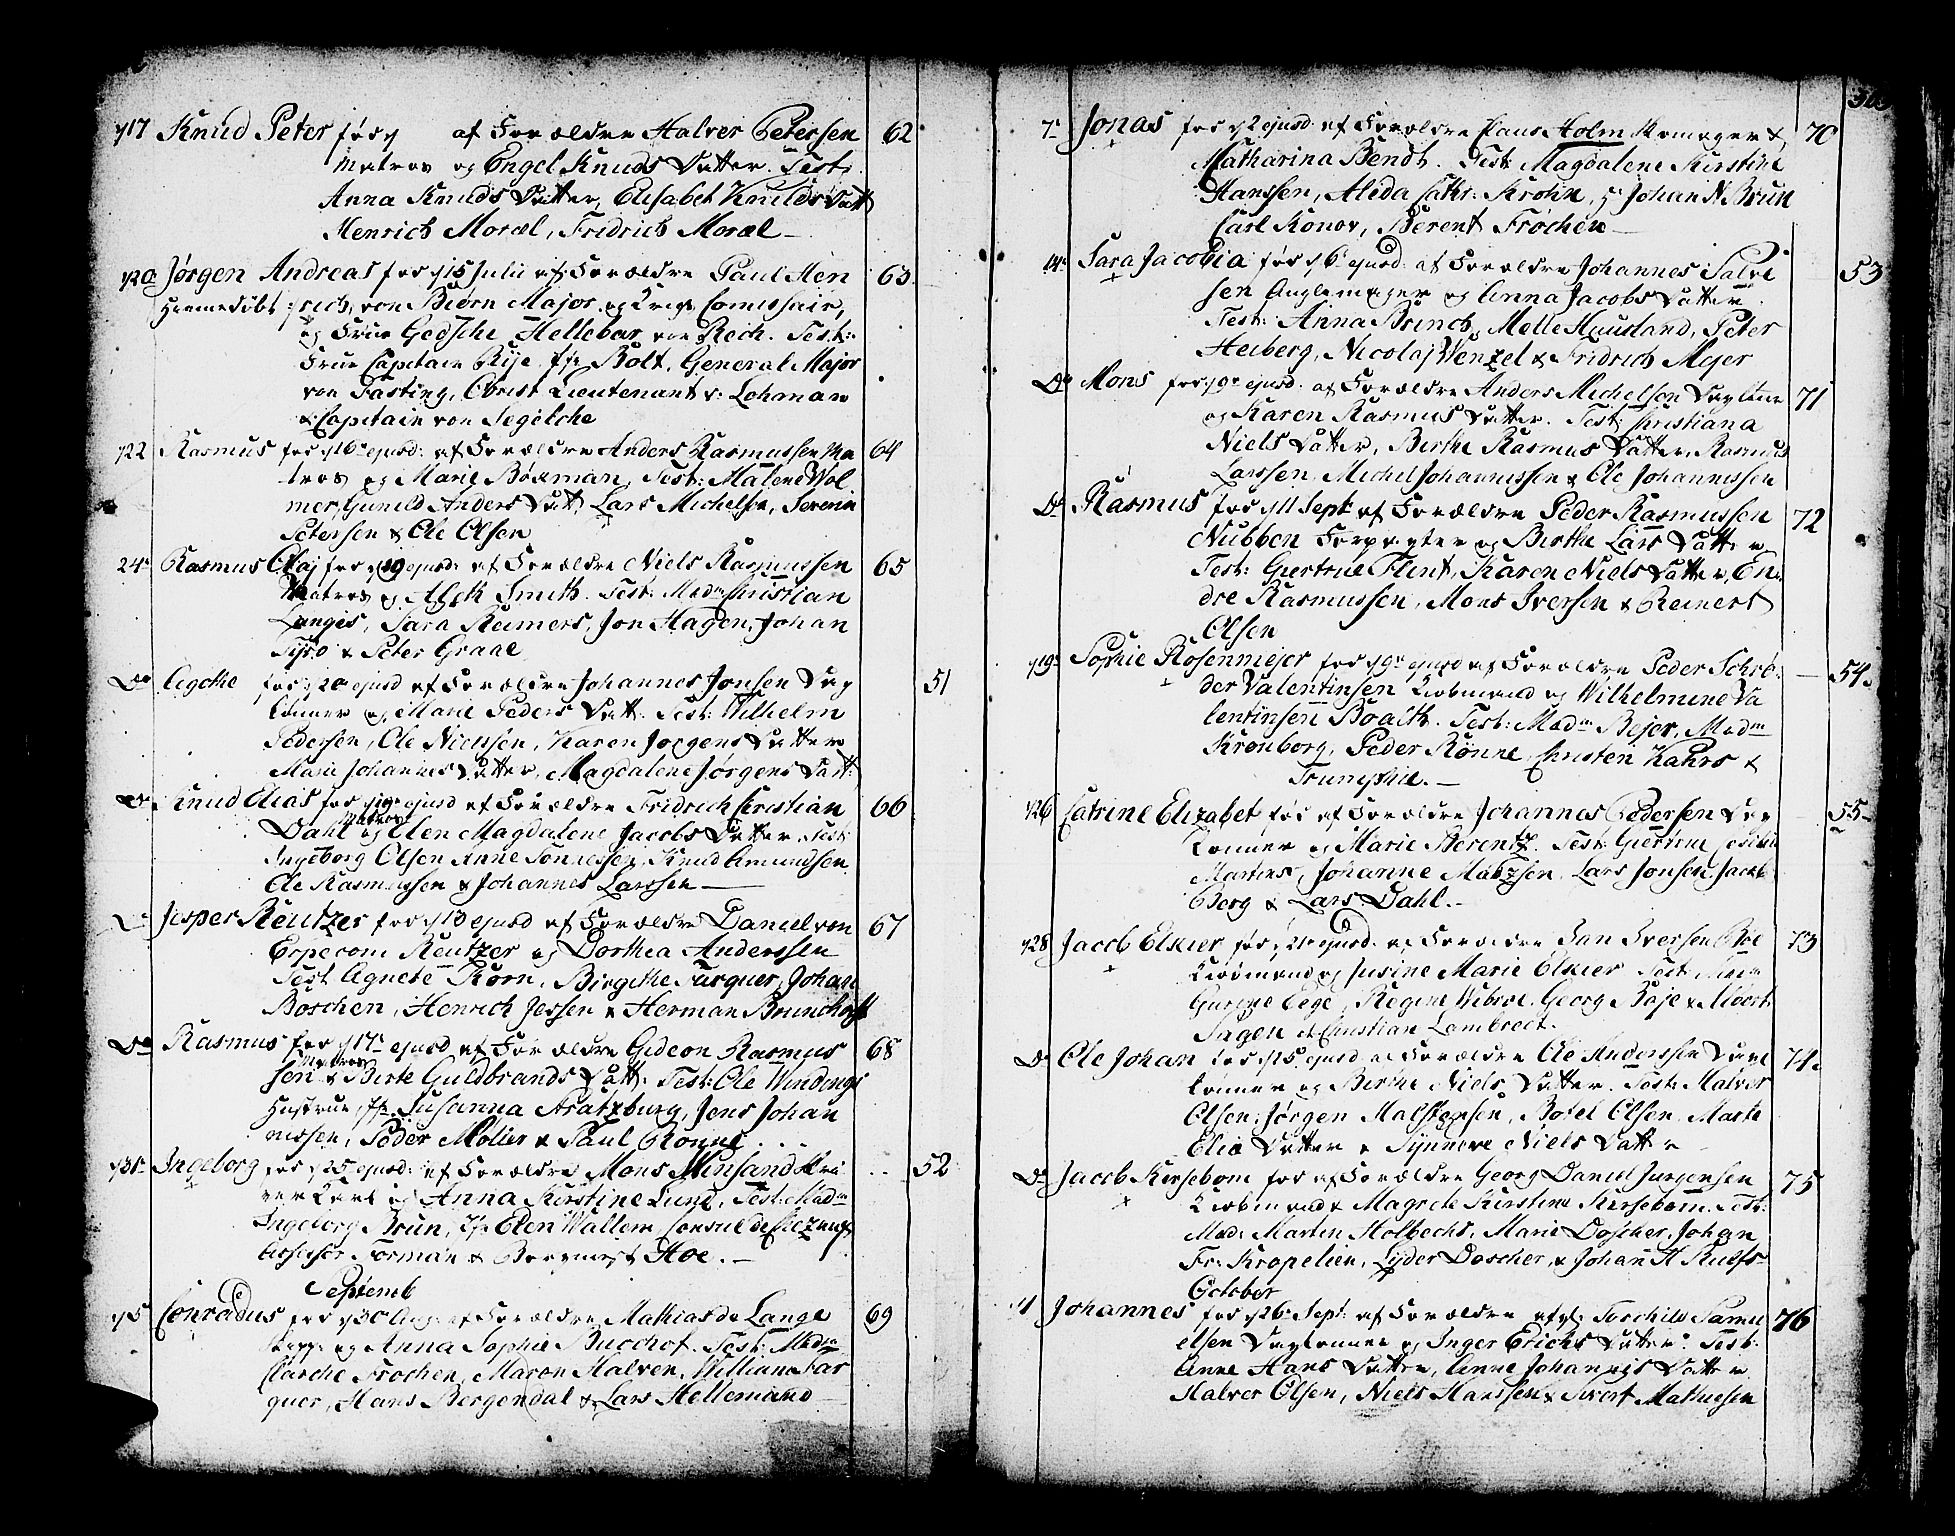 y17 Knud Peter fød y af Forældre Halver Petersen 62
Matros og Engel Knuds Datter. Test:
Anna Knuds Datter, Elisabet Knuds Datt
Henrich Moræl, Fridrich Moræl
y20 Jørgen Andreas fød y15 Julii af Forældre Paul Hen 63
Hiemmedøbt rich von Biørn Major og Krigs Comissair,
og Frue Gedsche Hellebar von Rech. Test:
Frue Capitain Rije, Jfr Bolt, General Major
von Fasting, Obrist Lieutenant v: Lohman
& Capitain von Segelche
y22 Rasmus fød y16 ejusd: af Forældre Anders Rasmussen Ma 64
tros og Marie Børman, Test: Malene Wol
mer, Gunild Anders Datt, Lars Michelsen, Severin
Petersen & Ole Olsen
24 Rasmus Olaj fød y19 ejusd: af Forældre Niels Rasmussen 65
Matros og Alch Smith. Test: Madm Christian
Langes, Sara Reimers, Jon Hagen, Johan
Fijro & Peter Graae
Do Aigethe fød y20 ejusd af Forældre Johannes Jonsen Dag 51
lønner og Marie Peders Datt: Test: Wilhelm
Pedersen, Ole Nielssen, Karen Jørgens Datter
Marie Johannes Datter, Magdalene Jørgens Datt:
Do Knud Elias fød y19 ejusd af Forældre Fridrich Christian 66
Matros
Dahl og Elen Magdalene Jacobs Datter. Test:
Ingeborg Olsen Anne Tonnessen, Knud Amundsen
Ole Rasmussen & Johannes Larssen
Do Jesper Reutzer fød y13 ejusd af Forældre Daniel von 67
Erpecom Reutzer og Dorthea Anderssen
Test Agnete Korn, Birgithe Farquer, Johan
Boschen, Henrich Jessen & Herman Brunchorst
Do Rasmus fød y17 ejusd af Forældre Gideon Rasmus 68
Matros
sen & Birte Guldbrands Datt: Test: Ole Windings
Hustrue, Jfr Susanna Aratzburg, Jens Johan
nissen, Peder Møller & Paul Rønne
y31 Ingeborg fød y25 ejusd: af Forældre Mons Minsand 52
Karl og Anna Kirstine Lund, Test: Madm
Ingeborg Brun, Jfr Elen Wallem, Consul de
Assessor Forman & Borgmest Hoe.
Septemb
y5 Conradus fød y30 Aug: af Forældre Mathias de Lange 69
Skipp: og Anna Sophie Bucchof. Test: Madm
Clarche Frochen, Maron Halven, William Far
quer, Hans Bergendal & Lars Hellemand
7 Jonas fød y2 ejusd: af Forældre Claus Holm Skomager & 70
Catharina Bendt. Test: Magdalene Kirstine
Hanssen, Alida Cathr: Krohn, Hr Johan N Brun
Carl Konov, Berent Frochen
14 Sara Jacobia fød y6 ejusd: af Forældre Johannes Salve 53
sen Anglemager og Anna Jacobs Datter
Test: Anna Brinch, Molle Huusland, Peter
Heiberg, Nicolaj Wenzel & Fridrich Mejer
Do Mons fød y9 ejusd: af Forældre Anders Michelsen Daglønr 71
og Karen Rasmus Datter. Test: Christiana
Niels Datter, Berthe Rasmus Datter, Rasmus
Larssen, Michel Johannissen & Ole Johannissen
Do Rasmus fød y11 Sept af Forældre Peder Rasmussen 72
Nubben Forpagter og Birthe Lars Datter
Test: Giertrue Flint, Karen Niels Datter, En
dre Rasmussen, Mons Iversen & Reinert
Olsen
y19 Sophie Rosenmejer fød y9 ejusd af Forældre Peder Schrø 54
der Valentinsen Kiøbmand og Wilhelmine Va
lentinsen Boalth. Test: Madm Bejer, Madm
Kronborg, Peder Rønne, Christen Kahrs &
y26 Catrine Elizabet fød af Forældre Johannes Pedersen Dag 55
lønner og Marie Berentz. Test: Giertrue
Martens, Johanne Matzsen, Lars Jonsen, Jacob
Berg & Lars Dahl.
y28 Jacob Elxier fød y21 ejusd: af Forældre Jan Iversen Boe 73
Kiøbmand og Jusine Marie Elxier Test: Madm
Gurine Eege, Regine Wibroe, Georg Baje &
Fagen & Christian Lambrect.
Do Ole Johan fød y25 ejusd af Forældre Ole Anderssen Dag 74
lønner og Berthe Niels Datter. Test: Halver
Olsen, Jørgen Malstensen, Botel Olsen, Marta
Elia Datter & Synneve Niels Datter
Do Jacob Kirsebom fød af Forældre Georg Daniel Jurgensen 75
Kiøbmand & Magrete Kirstine Kirsebom. Test:
Mad: Marten Holbechs, Marie Doscher, Johan
Fr: Kropelien, Lyder Doscher, & Johan H Rulfs
October
11 Johannes fød y26 Sept: af Forældre afg: Torchild Samu 76
elsen Daglønner og Inger Erichs Datter. Test:
Anne Hans Datter, Anne Johannis Datter
Halver Olsen, Niels Hanssen & Sivert Mathiesen